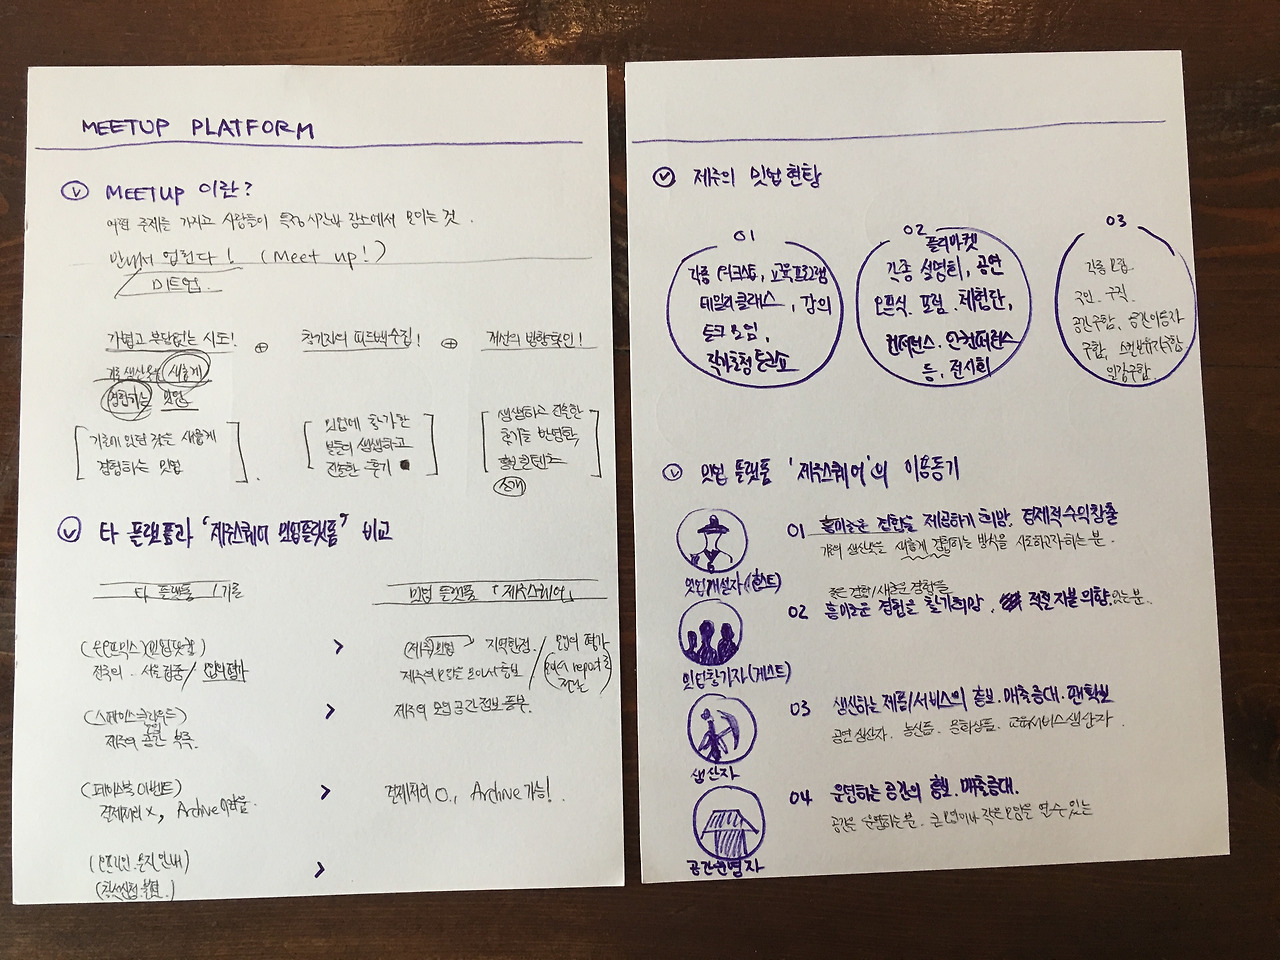 MEETUP PLATFORM
MEETUP 이란?
어떤 주제를 가지고 사람들이 특정 시간과 장소에서 모이는 것.
만나서 업된다! (Meet up!)
미트업
가볍고 부담없는 시도! ⊕ 참가자의 피드백수집! ⊕ 개선의 방향확인!
기존 생산물을 새롭게
경험하는 밋업
[기존에 있던 것을 새롭게
경험하는 밋업]
[밋업에 참가한
분들의 생생하고
진솔한 후기]
[생생하고 진솔한
후기를 반영한
홍보콘텐츠]
소개
타 플랫폼과 '제주스퀘어 밋업플랫폼' 비교
타 플랫폼 / 기존
밋업 플랫폼 「제주스퀘어」
(온오프믹스)(밋업닷컴)
전국의. 서울집중 / 모임의 평가
>
(제주)의 밋업 → 지역한정.
제주의 모임을 모아서 홍보
/ 모임의 평가
(report로 전달)
(스페이스클라우드)
제주의 모임 공간 부족.
>
제주의 모임 공간 정보 풍부.
(페이스북 이벤트)
결제처리 X, Archive 어려움.
>
결제처리 O, Archive 가능!
(오프라인 공지 안내)
(참석신청 불편)
>
제주의 밋업 현황
01
각종 워크숍, 교육프로그램
데일리클래스, 강의
토크 모임,
작가초청 토크쇼
02
플리마켓
각종 설명회, 공연
오프식. 포럼. 체험단,
컨퍼런스. 언컨퍼런스
등, 전시회
03
각종 모집
구인. 구직.
공간구함, 공간이용자
구함, 스펀보유자구함.
일감구함.
밋업 플랫폼 '제주스퀘어'의 이용동기
밋업개설자(호스트)
01 흥미로운 전환을 제공하기 희망. 경제적 수익창출
기존의 생산물을 새롭게 경험하는 방식을 시도하고자 하는 분.
밋업참가자(게스트)
좋은 경험/새로운 경험을
02 흥미로운 경험을 찾기 희망. 적절 지불 의향 있는 분.
생산자
03 생산하는 제품/서비스의 홍보. 매출증대. 팬확보
공연 생산자. 농산물. 문화상품. 교육서비스 생산자.
공간운영자
04 운영하는 공간의 홍보. 매출증대.
공간을 운영하는 분. 큰 모임이나 작은 모임을 열 수 있는